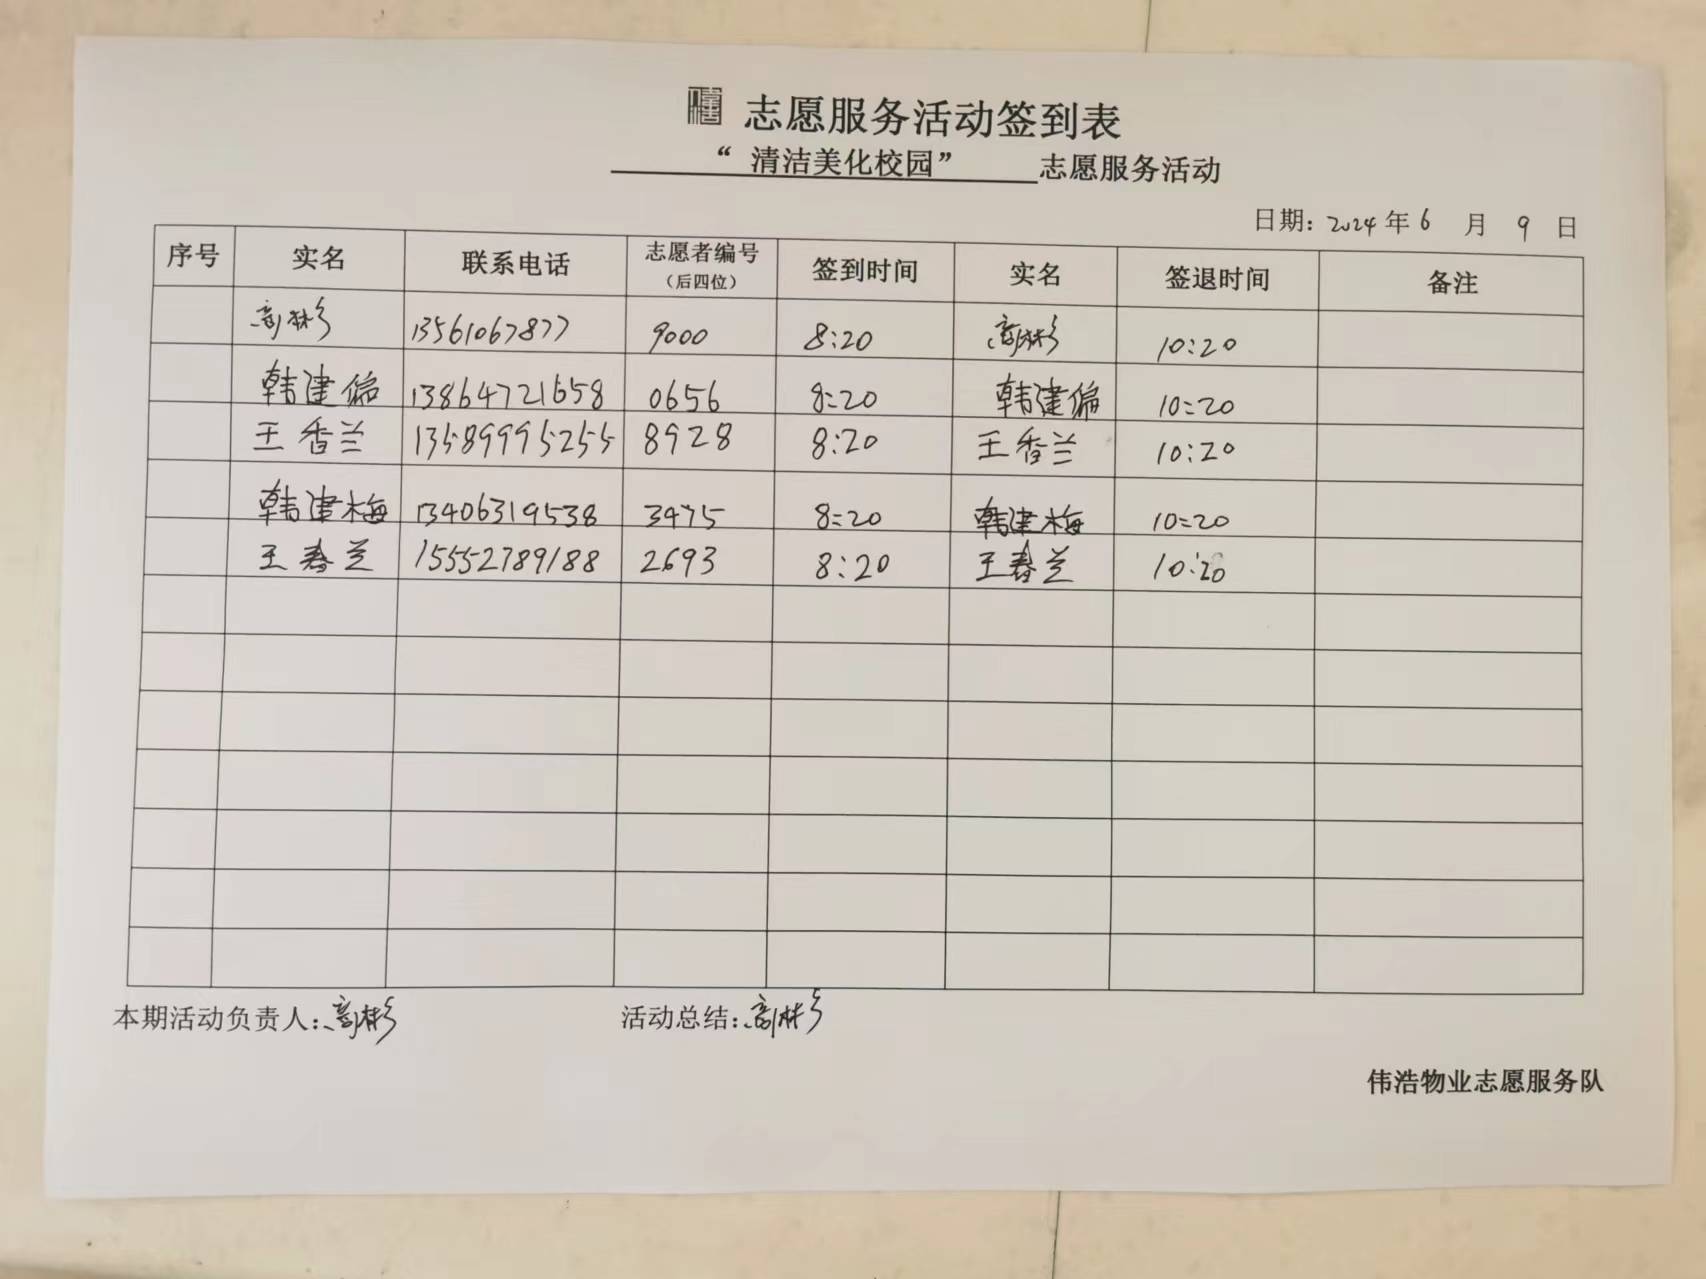 志愿服务活动签到表
“ 清洁美化校园” 志愿服务活动
日期: 2024 年 6 月 9 日
序号 实名 联系电话 志愿者编号（后四位） 签到时间 实名 签退时间 备注
高彬 13561067877 9000 8:20 高彬 10:20
韩建偏 13864721658 0656 8:20 韩建偏 10:20
王香兰 13589995255 8928 8:20 王香兰 10:20
韩建梅 13406319538 3475 8:20 韩建梅 10:20
王春兰 15552789188 2693 8:20 王春兰 10:20
本期活动负责人: 高彬 活动总结: 高彬
伟浩物业志愿服务队